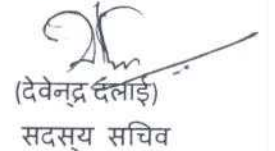 (देवेन्द्र दलाई)
सदस्य सचिव